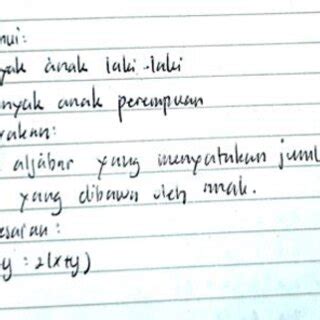 nui:
yak anak laki-laki
nyak anak perempuan
rakan:
aljabar yang menyatakan juml
yang dibawa oleh anak.
esaian:
y = 2(x+y)